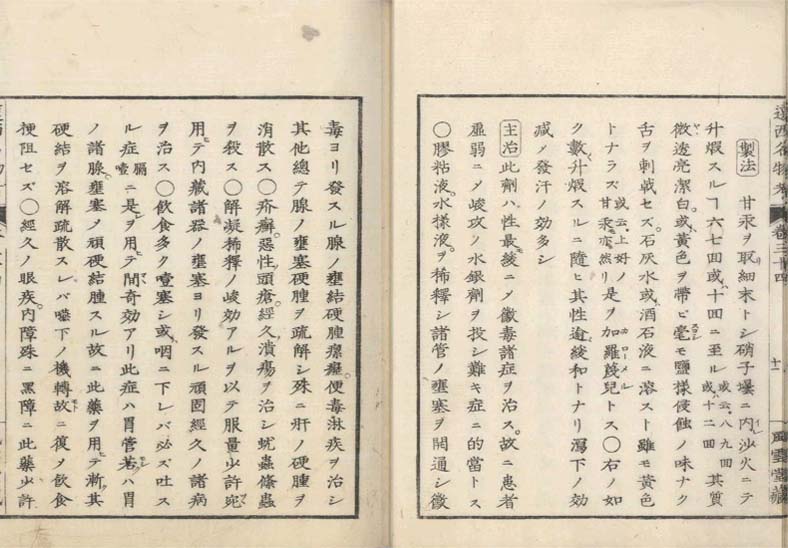 遠西名物考 巻三十四
製法 甘汞ヲ取細末トシ硝子壜ニ内沙火ニテ
升煆スルヿ六七囘或十囘ニ至ル或云八九囘或十二囘其質
微透亮潔白或黄色ヲ帯ビ毫モ鹽様侵蝕ノ味ナク
舌ヲ刺戟セズ石灰水或酒石液ニ溶スト雖モ黄色
トナラズ或云上好ノ甘汞モ亦然リ是ヲ加羅茂兒トス〇右ノ如
ク數升煆スルニ隨ヒ其性逾緩和トナリ瀉下ノ効
減ノ發汗ノ効多シ
主治 此劑ハ性最緩ニノ黴毒諸症ヲ治ス故ニ患者
虚弱ニノ峻攻ノ水銀劑ヲ投シ難キ症ニ的當トス
〇膠粘液水様液ヲ稀釋シ諸管ノ壅塞ヲ開通シ黴
十二
風雲堂藏
毒ヨリ發スル腺ノ壅結硬腫瘰癧便毒淋疾ヲ治シ
其他總テ腺ノ壅塞硬腫ヲ疏解シ殊ニ肝ノ硬腫ヲ
消散ス〇疥癬惡性頭瘡經久潰瘍ヲ治シ蚘蟲絛蟲
ヲ殺ス〇解凝稀釋ノ峻効アルヲ以テ服量少許宛
用テ内藏諸器ノ壅塞ヨリ發スル頑固經久ノ諸病
ヲ治ス〇飲食多ク噎塞シ或咽ニ下レバ必ズ吐ス
ル症膈噎ニ是ヲ用テ間奇効アリ此症ハ胃管若ハ胃
ノ諸腺壅塞ノ頑硬結腫スル故ニ此藥ヲ用テ漸其
硬結ヲ溶解疏散スレバ嚥下ノ機轉故ニ復ノ飲食
梗阻セズ〇經久ノ眼疾内障殊ニ黒障ニ此藥少許